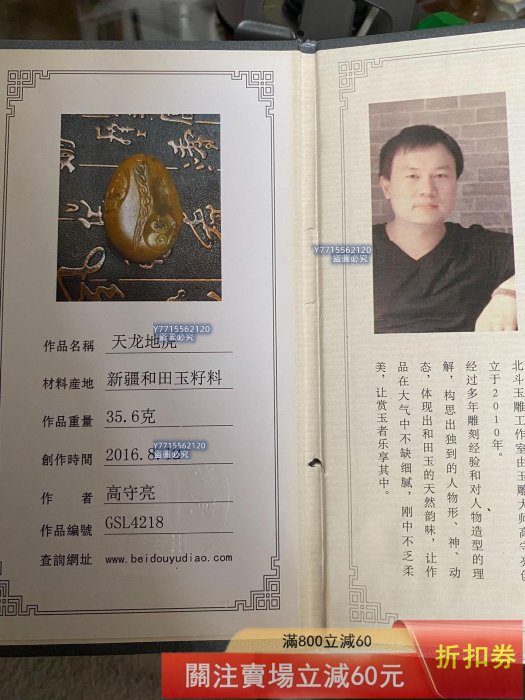 作品名稱 天龙地虎
材料産地 新疆和田玉籽料
作品重量 35.6克
創作時間 2016.8
作 者 高守亮
作品編號 GSL4218
查詢網址 www.beidouyudiao.com
Y7715562120
盗圖必究
Y7715562120
盗圖必究
Y7715562120
盗圖必究
北斗玉雕工作室由玉雕大师高守亮创
立于2010年。
经过多年雕刻经验和对人物造型的理
解，构思出独到的人物形、神、动
态，体现出和田玉的天然韵味，让作
品在大气中不缺细腻，刚中不乏柔
美，让赏玉者乐享其中。
滿800立減60
關注賣場立減60元
折扣券